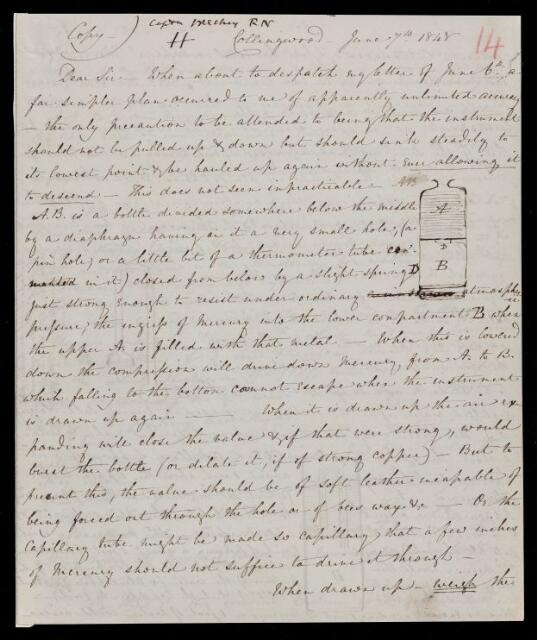 Copy —) Captn Beechey R N
Collingwood - June 7th 1848
14
Dear Sir - When about to despatch my letter of June 6th, a
far simpler plan occurred to me of apparently unlimited accuracy
- the only precaution to be attended to being that the instrument
should not be pulled up & down but should sink steadily to
its lowest point & be hauled up again without ever allowing it
to descend — This does not seem impracticable - AB
A.B. is a bottle divided somewhere below the middle
by a diaphragm having in it a very small hole, (a
pin hole, or a little bit of a thermometer tube cemented
in it) closed from below by a slight spring D
just strong enough to resist under ordinary atmospheric
pressure, the ingress of Mercury into the lower compartment B when
the upper A is filled with that metal - When this is lowered
down the compression will drive down Mercury, from A to B.
which falling to the bottom cannot escape when the instrument
is drawn up again — When it is drawn up the air ex-
panding will close the valve &, if that were strong, would
burst the bottle (or dilate it, if of strong copper) - But to
prevent this, the valve should be of soft leather incapable of
being forced out through the hole or of bees wax &c — Or the
Capillary tube might be made so capillary that a few inches
of Mercury should not suffice to drive it through —
When drawn up - weigh the
A
D
B